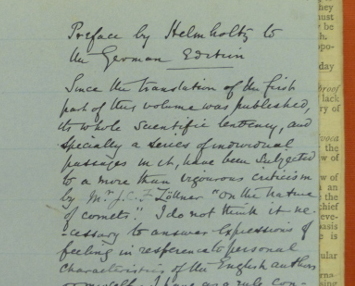 Preface by Helmholtz to
the German Edition
Since the translation of the first
part of this volume was published,
its whole scientific tendency, and
specially a series of individual
passages in it, have been subjected
to a more than vigourous criticism
by Mr J.C.F. Zöllner "On the Nature
of comets". I do not think it ne-
cessary to answer expressions of
feeling in reference to personal
characteristics of the English authors
or myself. I have as a rule con-